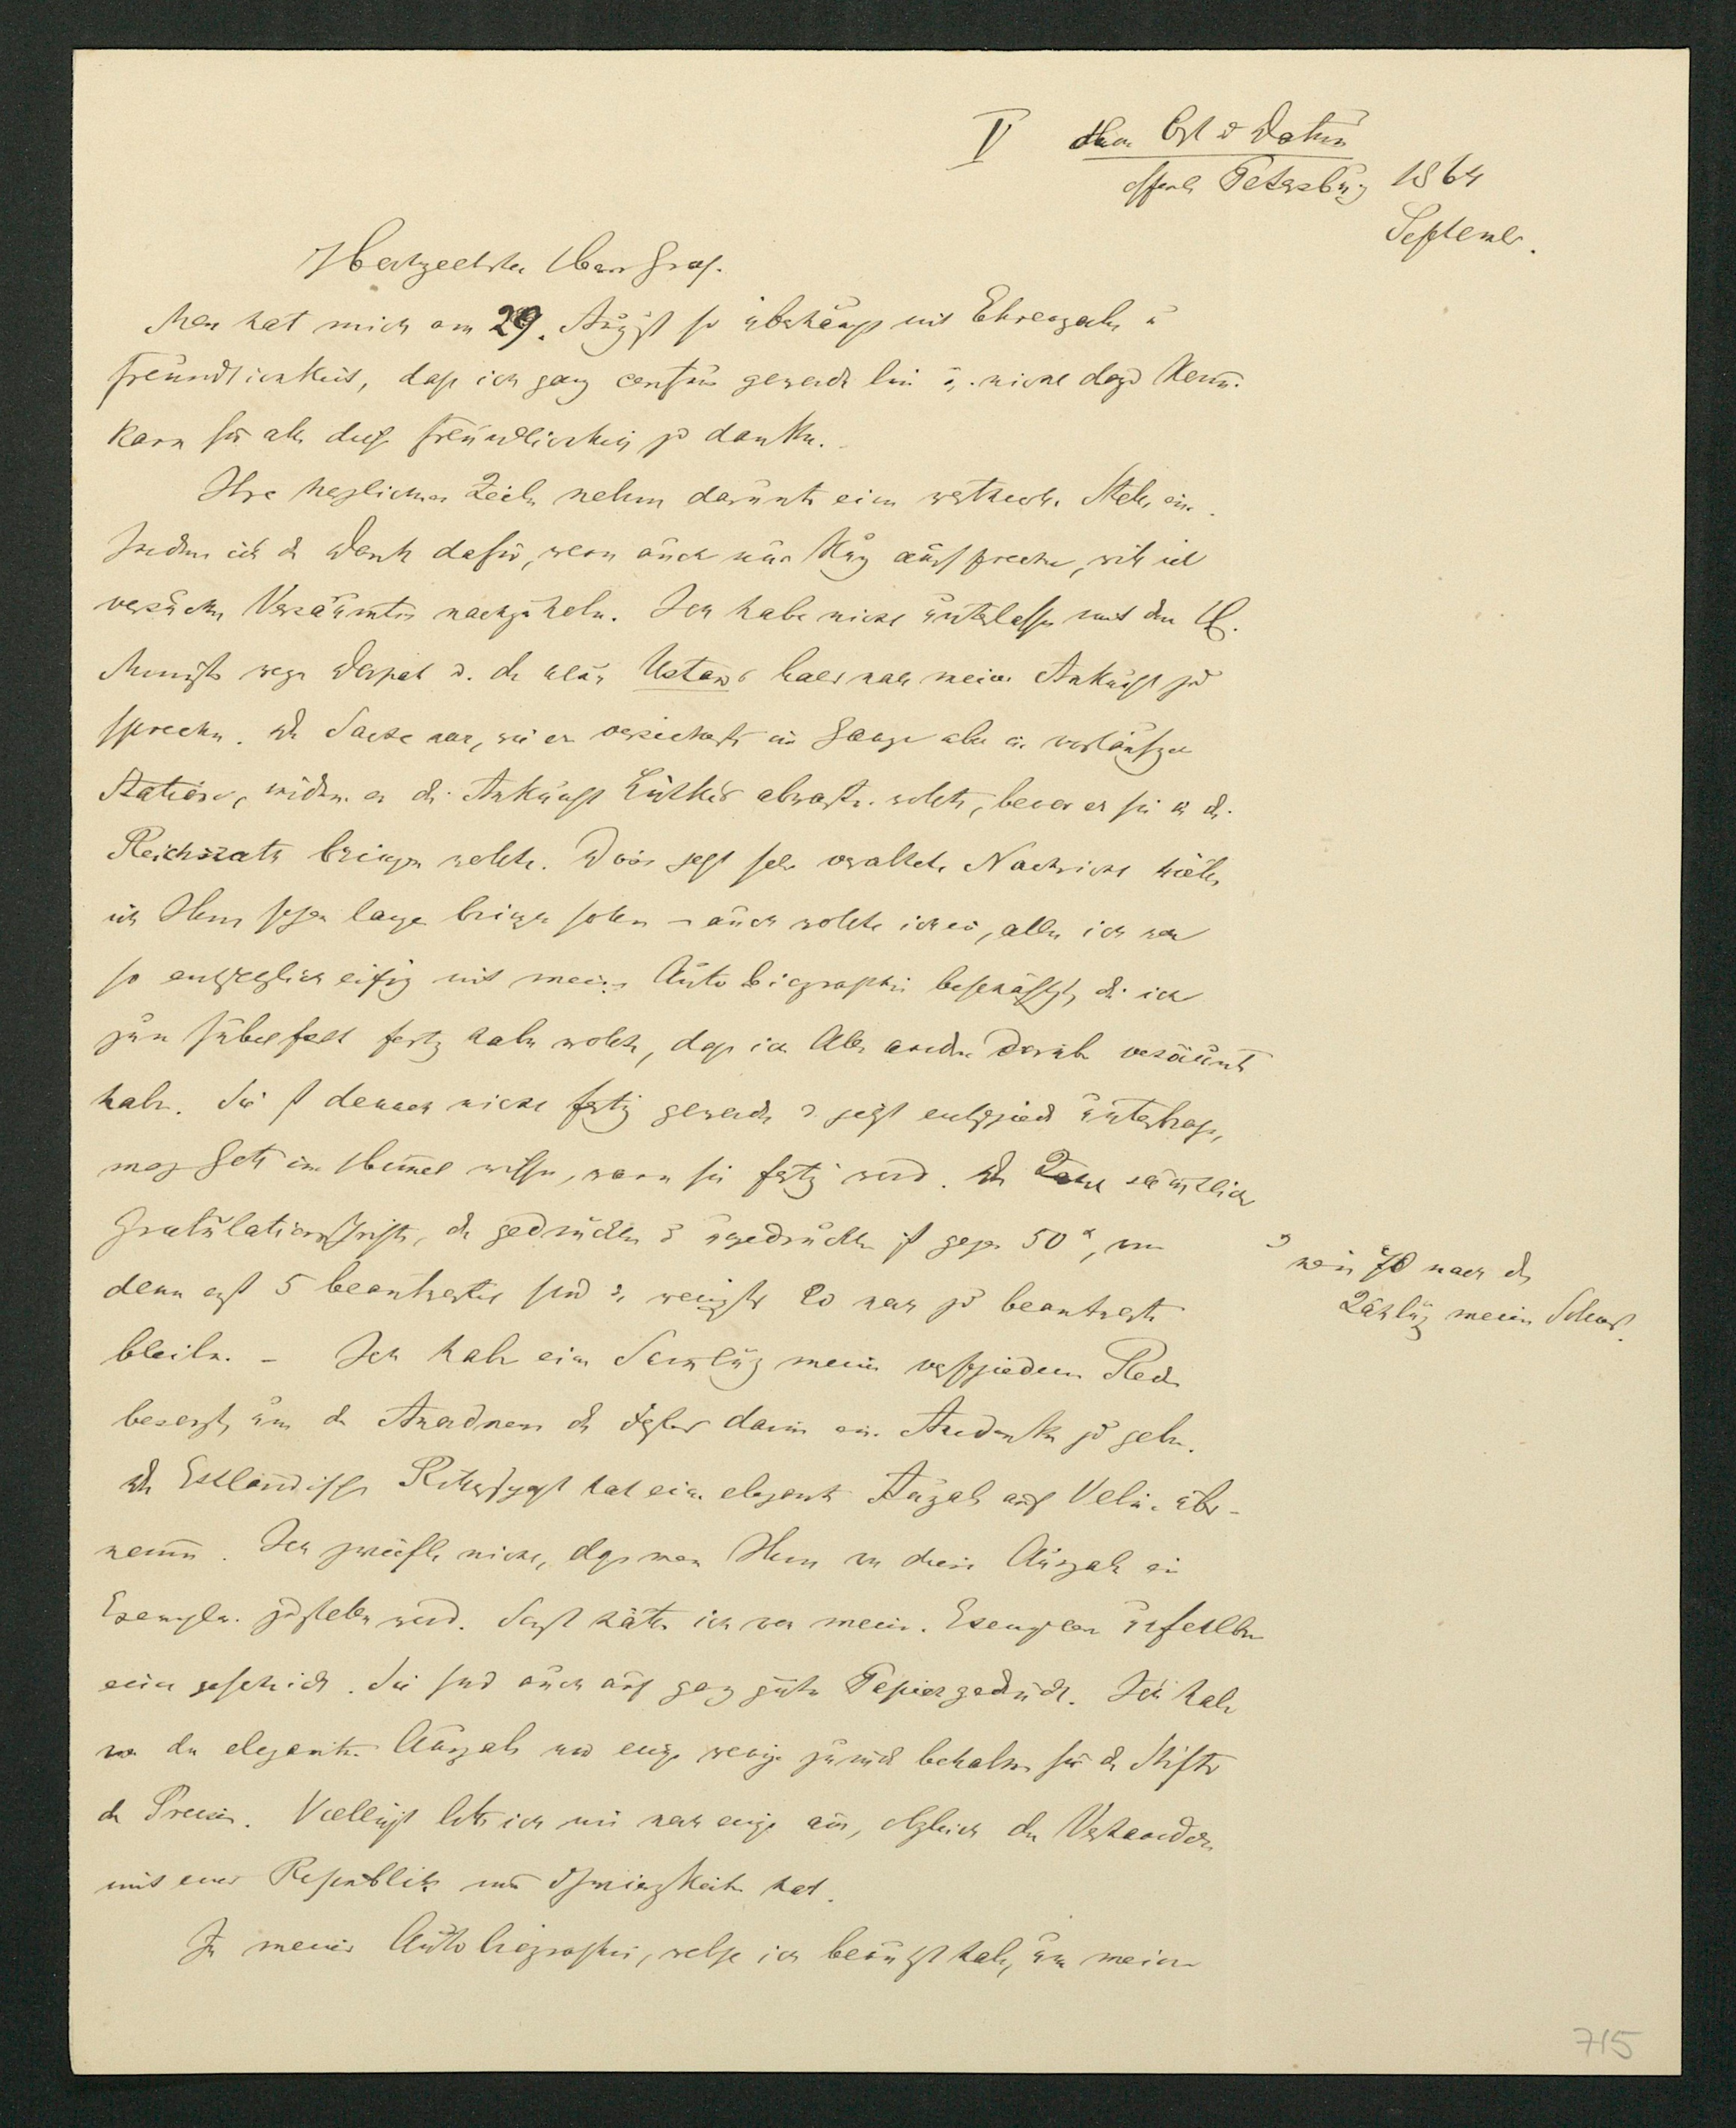 V ohne Ort u Datum
offenb. Petersburg 1864
September.
Hochgeehrter Herr Graf.
Man hat mich am 29. August so überhäuft mit Ehrengaben u
Freundlichkeit, dass ich ganz confus geworden bin u. nicht dazu komen
kann für alle diese Freundlichkeit zu danken.
Ihre herzlichen Zeilen nehmen darunter eine Stelle ein.
Indem ich den Dank dafür, wenn auch nur kurz ausspreche, will ich
versuchen Versäumtes nachzuholen. Ich habe nicht unterlassen mit dem H.
Minister wegen Dorpat u. der neuen Ustaws bald nach meiner Ankunft zu
sprechen. Die Sache war, wie er versicherte im Gange aber in vorläufiger
Station, indem er die Ankunft Lütkes abwarten wollte, bevor er sie in den
Reichsrath bringen wollte. Diese jetzt sehr veraltete Nachricht hätte
ich Ihnen schon lange bringen sollen – auch wollte ich es, allein ich war
so entsetzlich eifrig mit meiner Autobiographie beschäftigt, die ich
zum Jubelfest fertig haben wollte, dass ich Alles andere darüber versäumt
habe. Sie ist dennoch nicht fertig geworden u jetzt entschieden unterbrochen,
mag Gott im Himmel wissen, wann sie fertig wird. Die Zahl sämtlicher
Gratulationsschriften, der gedruckten u ungedruckten ist gegen 50 x, von
denen erst 5 beantwortet sind u wenigstens 20 noch zu beantworten
bleiben. – Ich habe eine Samlung meiner verschiedenen Reden
besorgt, um den Anordnern des Festes darin ein Andenken zu geben.
Die Estländische Ritterschaft hat eine elegante Ausgabe auf Velin über-
nomen. Ich zweifle nicht, dass man Ihnen von dieser Ausgabe ein
Exemplar zustellen wird. Sonst hätte ich von meinen Exemplaren unfehlbar
eins geschickt. Sie sind auch auf ganz gutem Papier gedruckt. Ich habe
von der eleganten Ausgabe nur einige wenige zurück behalten für die Stifter
des Preises. Vielleicht bitte ich mir noch einige aus, obgleich das Verhandeln
mit einer Republik imer Schwierigkeiten hat.
In meiner Autobiographie, welche ich benutzt habe, um meine
x nein 70 nach der
Zählung meines Sohnes.
715